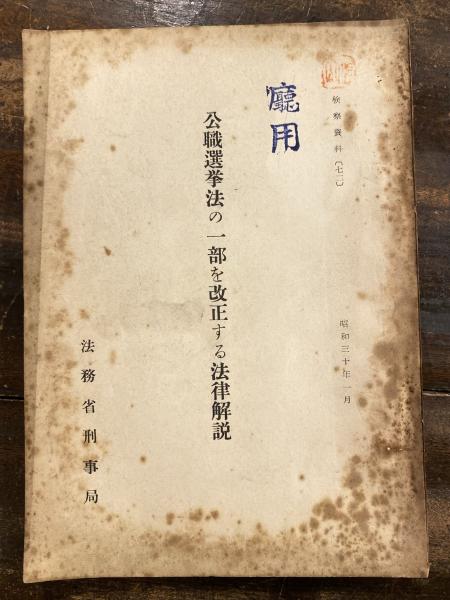 検察資料〔七二〕
昭和三十年一月
廳用
公職選挙法の一部を改正する法律解説
法務省刑事局